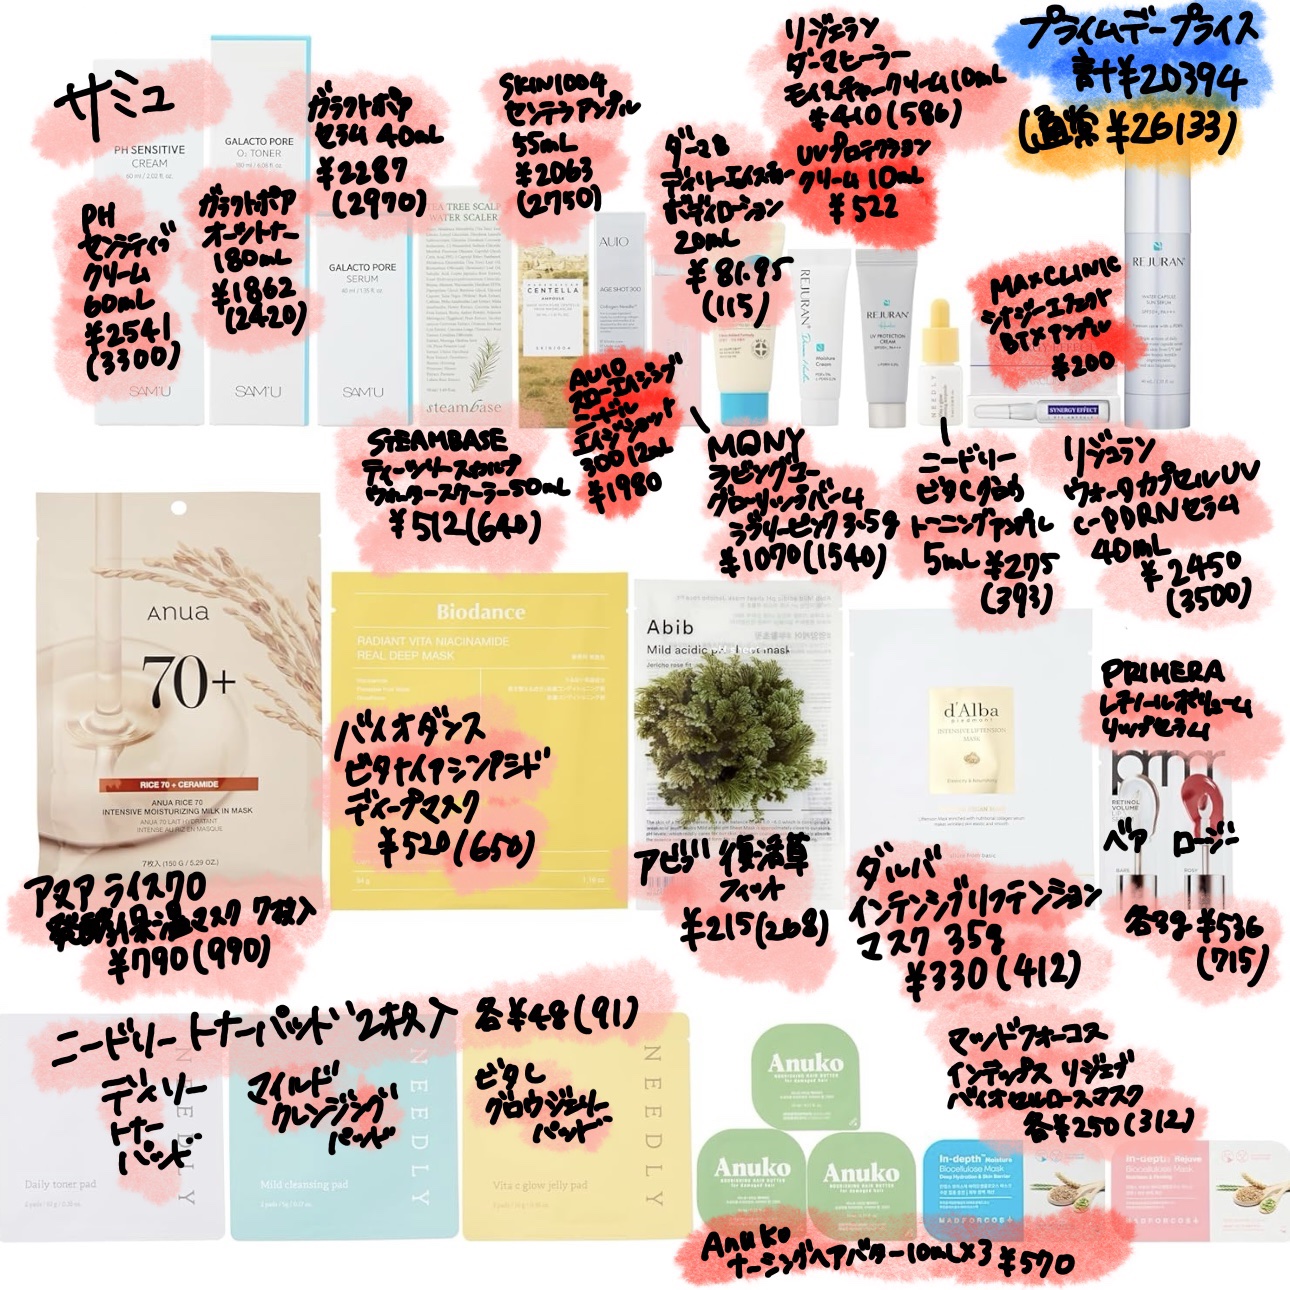 プライムデープライス
計¥20394
(通常 ¥26133)
サミュ
PH SENSITIVE
CREAM
60 ml / 2.02 fl. oz.
SAM'U
PH
センシティブ
クリーム
60mL
¥2541
(3300)
GALACTO PORE
O₂ TONER
SAM'U
ガラクトポア
オーツトナー
180mL
¥1862
(2420)
ガラクトポア
セラム 40mL
¥2287
(2970)
GALACTO PORE
SERUM
SAM'U
TEA TREE SCALP
WATER SCALER
steambase
STEAMBASE
ティーツリースカルプ
ウォータースケーラー50mL
¥512(640)
SKIN1004
センテラアンプル
55mL
¥2063
(2750)
CENTELLA
AMPOULE
SKIN1004
AUIO
AGE SHOT 300
AUIO
スローエイジング
ニードル
エイジショット
300 12mL
¥1980
ダーマB
デイリーモイスチャー
ボディローション
20mL
¥81.95
(115)
リジュラン
ダーマヒーラー
モイスチャークリーム10mL
¥410(586)
UVプロテクション
クリーム10mL
¥522
REJURAN
Moisture
Cream
REJURAN
UV PROTECTION
CREAM
MQNY
ラビングユー
グローリップバーム
ラブリーピンク3.5g
¥1070(1540)
NEEDLY
ニードリー
ビタCグロウ
トーニングアンプル
5mL ¥275
(393)
MAXCLINIC
シナジーエフェクト
BTXアンプル
¥200
SYNERGY EFFECT
REJURAN
WATER CAPSULE
SUN SERUM
リジュラン
ウォータカプセルUV
c-PDRNセラム
40mL
¥2450
(3500)
Anua
70+
RICE 70 + CERAMIDE
ANUA RICE 70
INTENSIVE MOISTURIZING MILK IN MASK
ANUA 70 LAIT HYDRATANT
INTENSE AU RIZ EN MASQUE
7枚入 (150 G / 5.29 OZ.)
アヌア ライス70
発酵保湿マスク 7枚入
¥790(990)
Biodance
RADIANT VITA NIACINAMIDE
REAL DEEP MASK
バイオダンス
ビタナイアシンアミド
ディープマスク
¥520(650)
Abib
Mild acidic pH sheet mask
Jericho rose fit
アビブ 復活草
フィット
¥215(268)
d'Alba
piedmont
INTENSIVE LIFTENSION
MASK
ダルバ
インテンシブリフテンション
マスク 35g
¥330(412)
PRIMERA
レチノールボリューム
リップセラム
RETINOL
VOLUME
ベア ロージー
BARE
ROSY
各3g ¥536
(715)
ニードリー トナーパッド 2枚入 各¥48(91)
デイリー
トナー
パッド
NEEDLY
Daily toner pad
マイルド
クレンジング
パッド
NEEDLY
Mild cleansing pad
ビタC
グロウジェリー
パッド
NEEDLY
Vita c glow jelly pad
Anuko
NOURISHING HAIR BUTTER
for damaged hair
Anuko
NOURISHING HAIR BUTTER
for damaged hair
Anuko
NOURISHING HAIR BUTTER
for damaged hair
Anuko
ナーシングヘアバター10mL×3 ¥570
マッドフォーコス
インデップス リジュブ
バイオセルロースマスク
各¥250(312)
In-depth Moisture
Biocellulose Mask
Deep Hydration & Skin Barrier
MADFORCOS
In-depth Rejuve
Biocellulose Mask
MADFORCOS